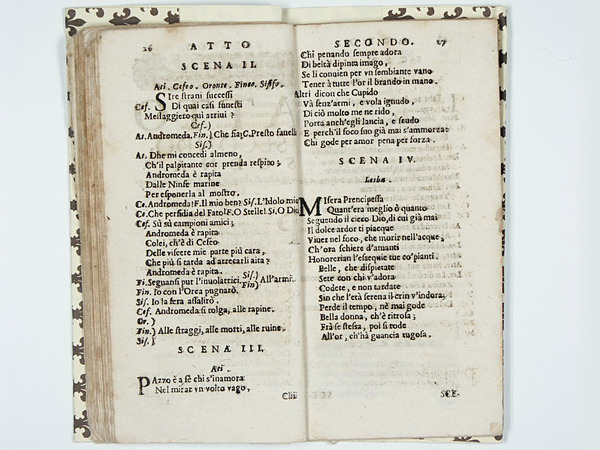 26 ATTO
SCENA II.
Ati. Cefeo. Oronte. Fineo. Sisifo.
SIre strani successi
Cef. Di quai casi funesti
Messaggiero quì arriui?
Cef.)
At. Andromeda. Fin.) Che sia? C. Presto fauella
Sis.)
At. Dhe mi concedi almeno,
Ch'il palpitante cor prenda respiro;
Andromeda è rapita
Dalle Ninfe marine
Per esponerla al mostro.
Ce. Andromeda? F. Il mio ben? Sis. L'Idolo mio
Ce. Che perfidia del Fato! F. O Stelle! Si. O Dio
Cef. Sù sù campioni amici;
Andromeda è rapita
Colei, ch'è di Cefeo
Delle viscere mie parte più cara,
Che più si tarda ad arrecarli aita?
Andromeda è rapita.
Fi. Seguansi pur l'inuolatrici Sis.) All'armi.
Fin)
Fin. Io con l'Orca pugnarò.
Sis. Io la fera assalirò.
Cef. Andromeda si tolga, alle rapine.
Or.)
Fin.) Alle straggi, alle morti, alle ruine.
Sis.)
SCENA III.
Ati
PAzzo è a fè chi s'inamora
Nel mirar vn volto vago,
Chi
SECONDO. 27
Chi penando sempre adora
Di beltà dipinta imago,
Se li conuien per vn sembiante vano
Tener à tutte l'or il brando in mano.
Altri dicon che Cupido
Và senz'armi, e vola ignudo,
Di ciò molto me ne rido,
Porta anch'egli lancia, e scudo
E perch'il foco suo già mai s'ammorza
Chi gode per amor pena per forza.
SCENA IV.
Lesba.
MIsera Prencipessa
Quant'era meglio ò quanto
Seguendo il cieco Dio, di cui già mai
Il dolce ardor ti piacque
Viuer nel foco, che morir nell'acque,
Ch'ora schiere d'amanti
Honorerian l'essequie tue co' pianti.
Belle, che dispietate
Sete con chi v'adora
Godete, e non tardate
Sin che l'età serena il crin v'indora;
Perde il tempo, nè mai gode
Bella donna, ch'è ritrosa;
Frà se stessa, poi si rode
All'or, ch'hà guancia rugosa.
SCE-